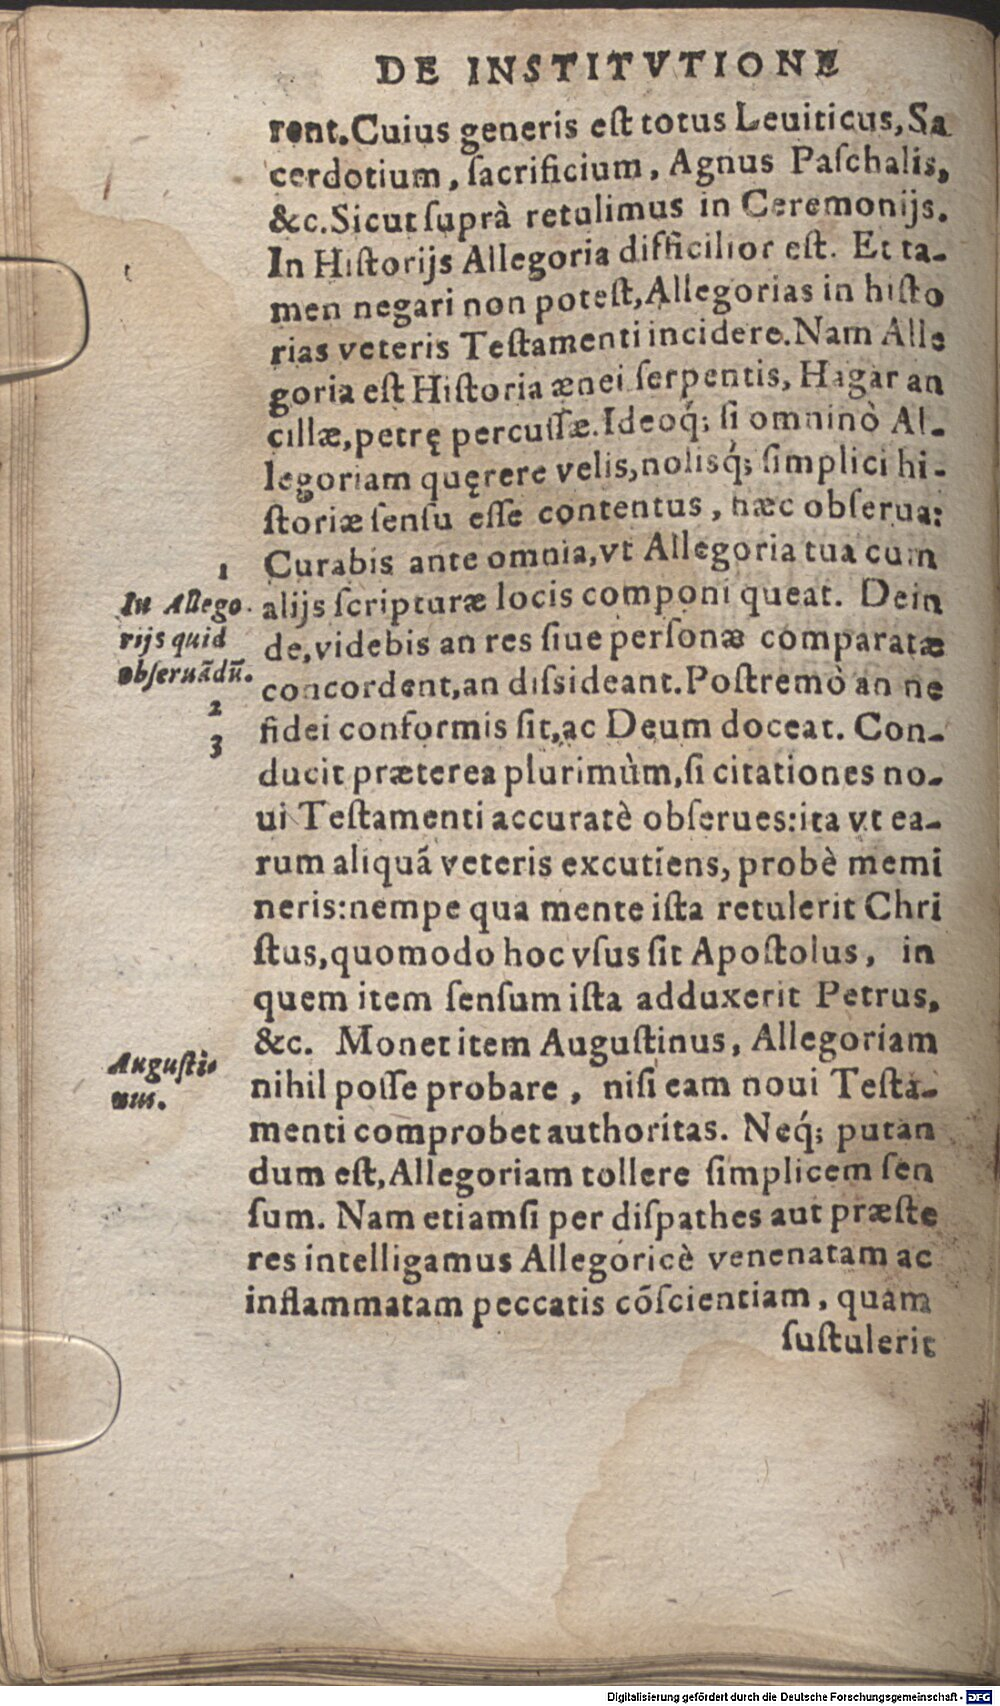 DE INSTITVTIONE
rent. Cuius generis eſt totus Leuiticus, Sa
cerdotium, ſacrificium, Agnus Paſchalis,
&c. Sicut ſuprà retulimus in Ceremonijs.
In Hiſtorijs Allegoria difficilior eſt. Et ta-
men negari non poteſt, Allegorias in hiſto
rias veteris Teſtamenti incidere. Nam Alle
goria eſt Hiſtoria ænei ſerpentis, Hagar an
cillæ, petrę percuſſæ. Ideoq́; ſi omninò Al-
legoriam quęrere velis, nolisq́; ſimplici hi-
ſtoriæ ſenſu eſſe contentus, hæc obſerua:
Curabis ante omnia, vt Allegoria tua cum
alijs ſcripturæ locis componi queat. Dein
de, videbis an res ſiue perſonæ comparatæ
concordent, an diſsideant. Poſtremò an ne
fidei conformis ſit, ac Deum doceat. Con-
ducit præterea plurimùm, ſi citationes no-
ui Teſtamenti accuratè obſerues: ita vt ea-
rum aliquã veteris excutiens, probè memi
neris: nempe qua mente iſta retulerit Chri
ſtus, quomodo hoc vſus ſit Apoſtolus, in
quem item ſenſum iſta adduxerit Petrus,
&c. Monet item Auguſtinus, Allegoriam
nihil poſſe probare, niſi eam noui Teſta-
menti comprobet authoritas. Neq́; putan
dum eſt, Allegoriam tollere ſimplicem ſen
ſum. Nam etiamſi per diſpathes aut præſte
res intelligamus Allegoricè venenatam ac
inflammatam peccatis cõſcientiam, quam
ſuſtulerit
1
In Allego-
rijs quid
obſeruãdũ.
2
3
Auguſti-
nus.
Digitalisierung gefördert durch die Deutsche Forschungsgemeinschaft - DFG